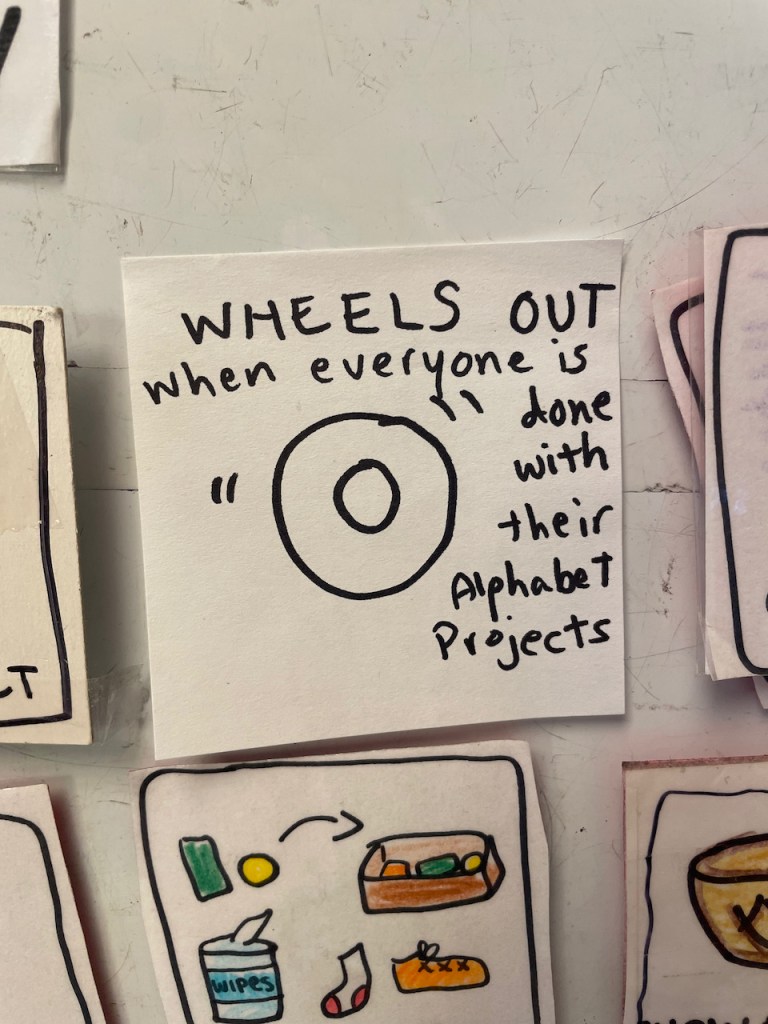 WHEELS OUT
when everyone is
done
with
their
AlphabeT
Projects
WIPES